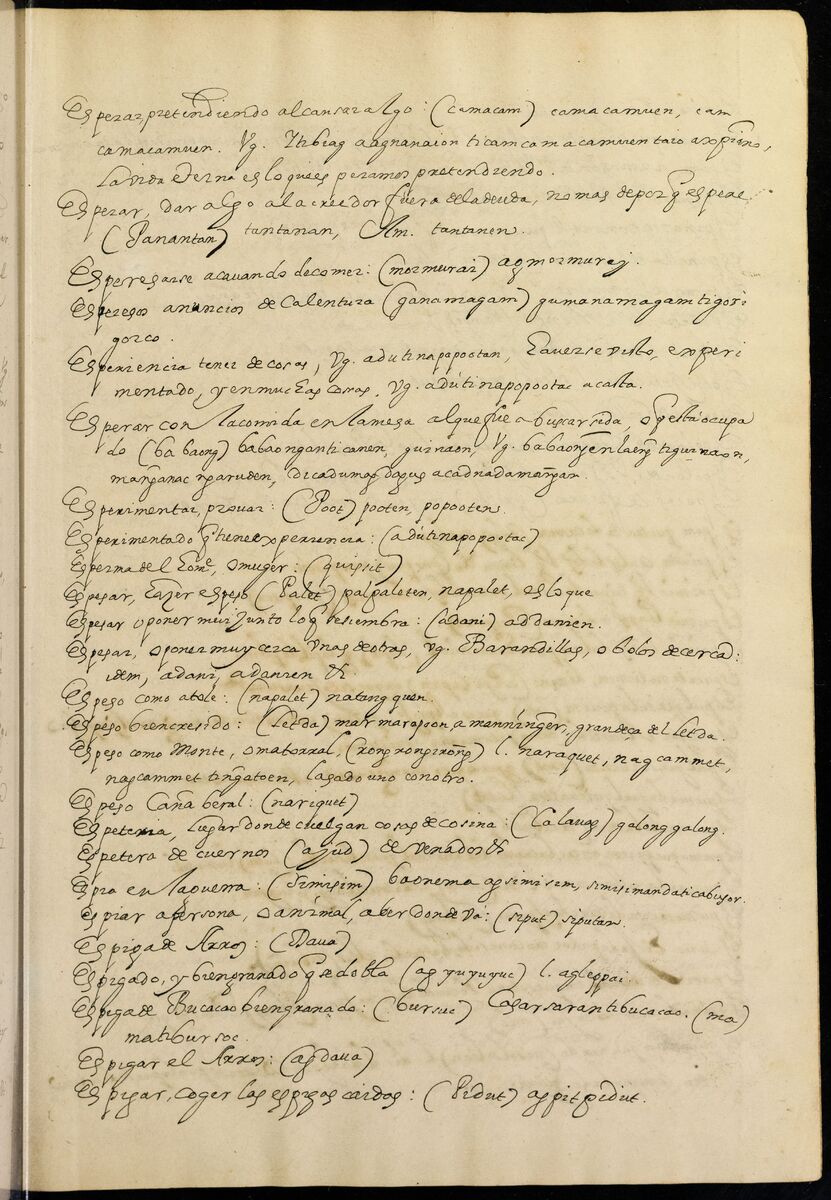 Esperar, pretendiendo alcansar algo: (camacam) camacamuen, cam
camacamuen. Vg. Ytibiag a agnanaion ticam camacamuentaio a xpiano,
La vida eterna es lo que es peramos pretendiendo.
Esperar, dar algo a la creedor fuera de la deuda, no mas de por q̃ espere
(Tanantan) tantanan, Am. tantanen.
Esperesarse acauando de comer: (mormurai) agmormurai.
Esperesos anuncios de Calentura (ganamagam) gumanamagam tigori
gorco.
Esperiencia tener de cosas, Vg. adutinapapootan, hauerse visto, experi
mentado, y en muchas cosas, Vg. adútinapopootac acasta.
Esperar con la comida en la mesa al que fue a buscar vida, o q̃ está ocupa
do (babaong) babaonganticanen, guinaon, Vg. tiguinaon,
manganac ngaruden, dicadumag
Esperimentar, prouar: (Poot) pooten, popooten.
Esperimentado q̃ tiene experiencia: (adútinapopootac)
Esperma del hombe, o muger: (quipsit)
Espesar, hazer espeso (Palet) palpaleten, napalet, es lo que
Espesar o poner mui junto lo q̃ se siembra: (adani) addanien.
Espesar, o poner muy cerca vnas de otras, vg. Barandillas, o bolos de cerca:
idem, adani, adanien &.
Espeso como atole: (napalet) natangquen.
Espeso bien cresido: (Letda) marmarapion, a manninger, grandeca del Letda.
Espeso como Monte, o matorral, (rongrongirong) l. naraquet, nagcammet,
nagcammet tingatoen, lagado uno con otro.
Espeso Cañaberal: (nariquet)
Espeteria, Lugar donde cuelgan cosas de cosina: (Salauag) galong galong.
Espetera de cuernos (ajud) de venados &
Espia en la guerra: (Simisim) baonema agsimisim, simisimandaticabusor.
Espiar a persona, o animal, a ber donde vá: (siput) siputan.
Espiga de Arros: (Daua)
Espigado, y bien granado q̃ se dobla (agyuyuyuc) l. agleppai.
Espiga de Bucacao bien granado: (bursuc) Cagarsarantibucacao. (ma)
matibursoc.
Espigar el Arros: (agdaua)
Espigar, coger las espigas caidas: (Pidut) agpitpidut.